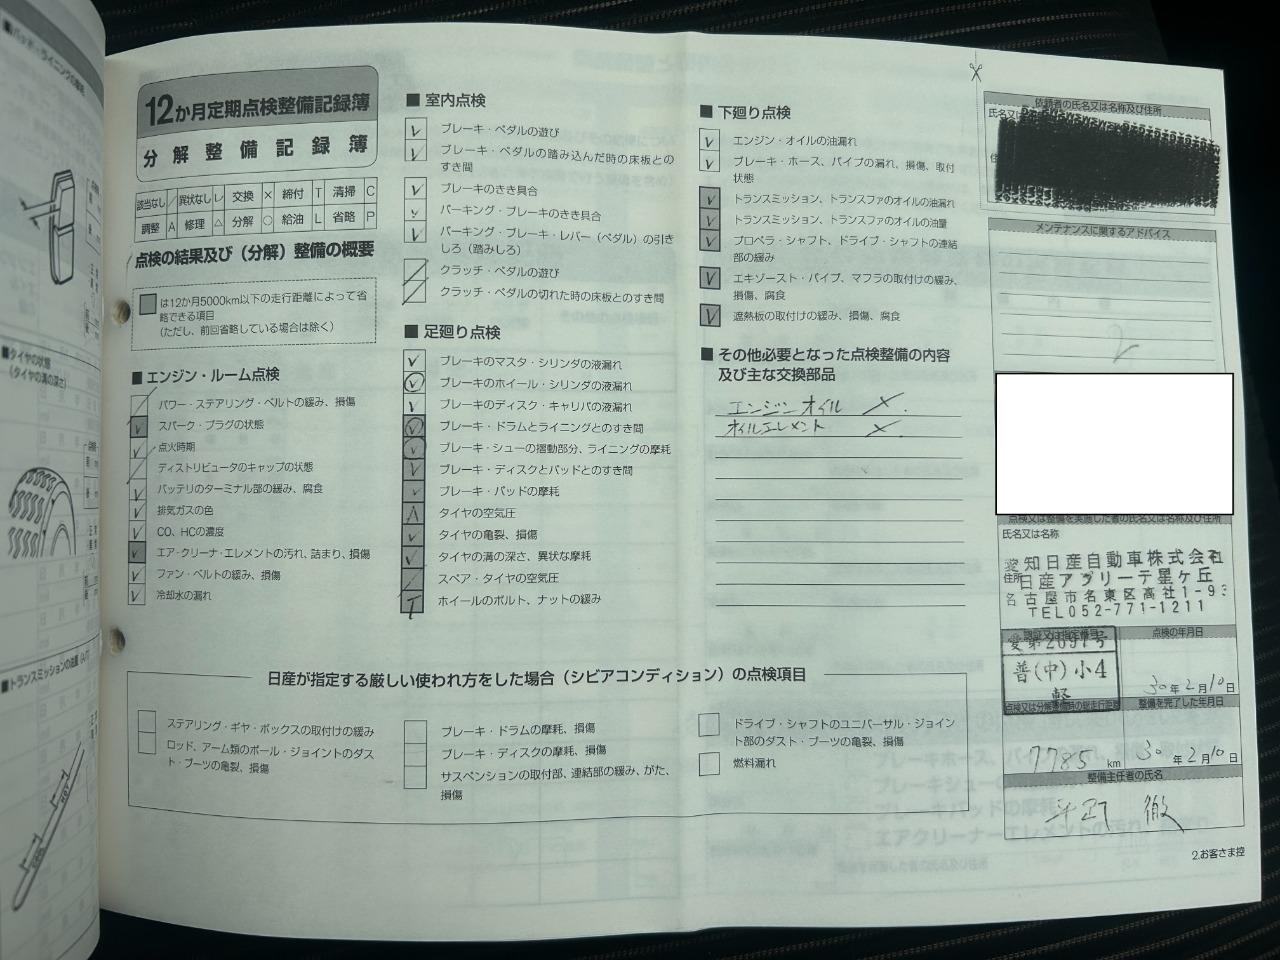 12か月定期点検整備記録簿
分解整備記録簿
該当なし ／ 異状なし レ 交換 × 締付 T 清掃 C
調整 A 修理 △ 分解 ○ 給油 L 省略 P
点検の結果及び（分解）整備の概要
は12か月5000km以下の走行距離によって省
略できる項目
（ただし、前回省略している場合は除く）
■ エンジン・ルーム点検
パワー・ステアリング・ベルトの緩み、損傷
スパーク・プラグの状態
点火時期
ディストリビュータのキャップの状態
バッテリのターミナル部の緩み、腐食
排気ガスの色
CO、HCの濃度
エア・クリーナ・エレメントの汚れ、詰まり、損傷
ファン・ベルトの緩み、損傷
冷却水の漏れ
■ 室内点検
ブレーキ・ペダルの遊び
ブレーキ・ペダルの踏み込んだ時の床板との
すき間
ブレーキのきき具合
パーキング・ブレーキのきき具合
パーキング・ブレーキ・レバー（ペダル）の引き
しろ（踏みしろ）
クラッチ・ペダルの遊び
クラッチ・ペダルの切れた時の床板とのすき間
■ 足廻り点検
ブレーキのマスタ・シリンダの液漏れ
ブレーキのホイール・シリンダの液漏れ
ブレーキのディスク・キャリパの液漏れ
ブレーキ・ドラムとライニングとのすき間
ブレーキ・シューの摺動部分、ライニングの摩耗
ブレーキ・ディスクとパッドとのすき間
ブレーキ・パッドの摩耗
タイヤの空気圧
タイヤの亀裂、損傷
タイヤの溝の深さ、異状な摩耗
スペア・タイヤの空気圧
ホイールのボルト、ナットの緩み
■ 下廻り点検
エンジン・オイルの油漏れ
ブレーキ・ホース、パイプの漏れ、損傷、取付
状態
トランスミッション、トランスファのオイルの油漏れ
トランスミッション、トランスファのオイルの油量
プロペラ・シャフト、ドライブ・シャフトの連結
部の緩み
エキゾースト・パイプ、マフラの取付けの緩み、
損傷、腐食
遮熱板の取付けの緩み、損傷、腐食
■ その他必要となった点検整備の内容
及び主な交換部品
エンジンオイル ×
オイルエレメント ×
日産が指定する厳しい使われ方をした場合（シビアコンディション）の点検項目
ステアリング・ギヤ・ボックスの取付けの緩み
ロッド、アーム類のボール・ジョイントのダス
ト・ブーツの亀裂、損傷
ブレーキ・ドラムの摩耗、損傷
ブレーキ・ディスクの摩耗、損傷
サスペンションの取付部、連結部の緩み、がた、
損傷
ドライブ・シャフトのユニバーサル・ジョイン
ト部のダスト・ブーツの亀裂、損傷
燃料漏れ
依頼者の氏名又は名称及び住所
メンテナンスに関するアドバイス
点検又は整備を実施した者の氏名又は名称及び住所
氏名又は名称
愛知日産自動車株式会社
住所
日産アプリーテ星ヶ丘
名古屋市名東区高社1-93
TEL052-771-1211
認証又は指定番号
愛第2097号
普(中)小4
軽
点検の年月日
30年2月10日
点検又は分解整備時の総走行距離
7785 km
整備を完了した年月日
30年2月10日
整備主任者の氏名
徹
2.お客さま控
■タイヤの状態
（タイヤの溝の深さ）